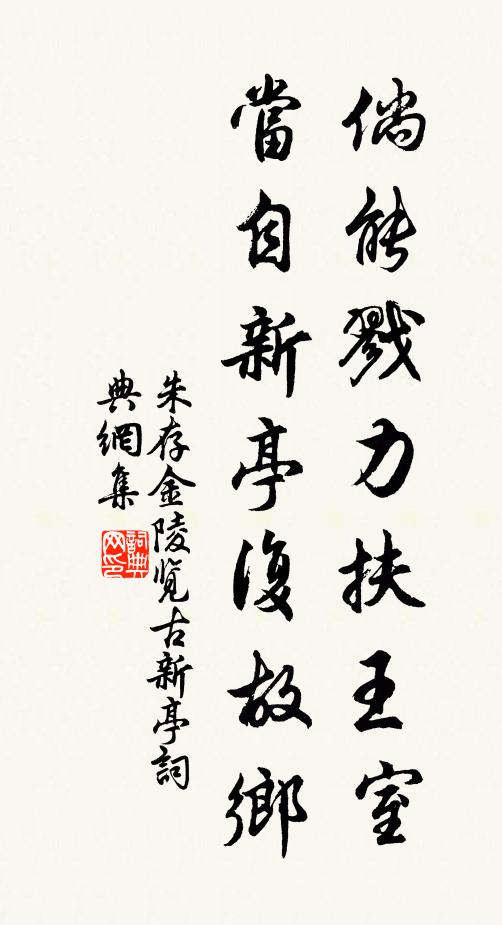 倘能戮力扶王室
當自新亭復故鄉
朱存金陵覽古新亭詞
典網集
詞典
网印